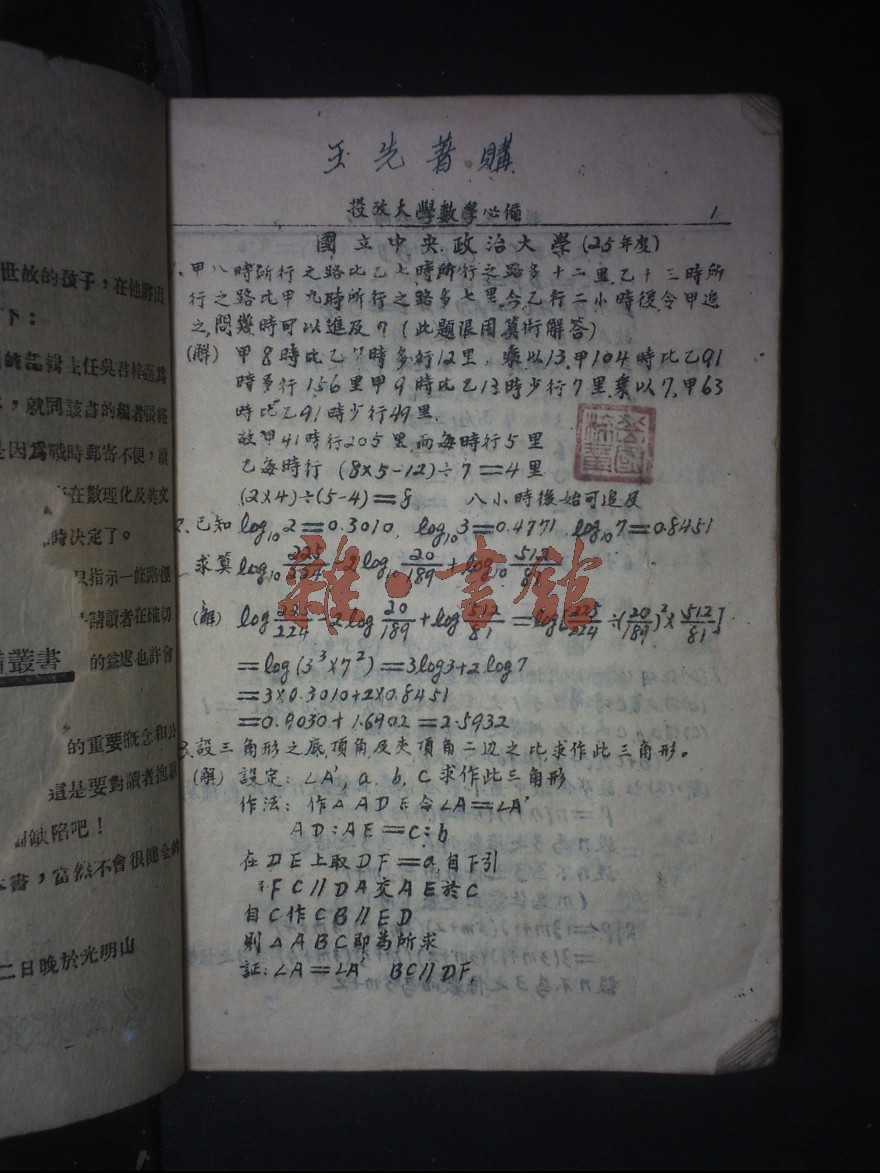 世故的孩子，在他將出
下：
輯主任吳君
，就同該書的編者張
是因爲戰時郵寄不便，
在數理化及英文
時決定了。
只指示一條路徑
請讀者在確切
叢書 的益處也許會
的重要概念和公
這是要對讀者抱
缺陷吧！
本書，當然不會很健全的
二日晚於光明山
玉先著購
投攷大學數學必備 1
國立中央政治大學(25年度)
1.甲八時所行之路比乙七時所行之路多十二里,乙十三時所
行之路比甲九時所行之路多七里,今乙行二小時後令甲追
之,問幾時可以進及?(此題限用算術解答)
(解) 甲8時比乙7時多行12里,乘以13,甲104時比乙91
時多行156里甲9時比乙13時少行7里乘以7,甲63
時比乙91時少行49里.
故甲41時行205里,而每時行5里
乙每時行 (8×5-12)÷7=4里
(2×4)÷(5-4)=8 八小時後始可追及
2.已知 log₁₀2=0.3010, log₁₀3=0.4771, log₁₀7=0.8451
求算 log₁₀ 225/224 - 2log₁₀ 20/189 + log₁₀ 512/81
(解) log 225/224 - 2log 20/189 + log 512/81 = log[225/224 ÷(20/189)²× 512/81]
=log(3³×7²)=3log3+2log7
=3×0.3010+2×0.8451
=0.9030+1.6902=2.5932
3.設三角形之底,頂角,及夾頂角二边之比,求作此三角形。
(解) 設定:∠A′, a. b, c 求作此三角形
作法: 作△ADE令∠A=∠A′
AD:AE=c:b
在DE上取DF=a,自F引
FC∥DA交AE於C
自C作CB∥ED
則△ABC即為所求
証:∠A=∠A′ BC∥DF,
雜·書館